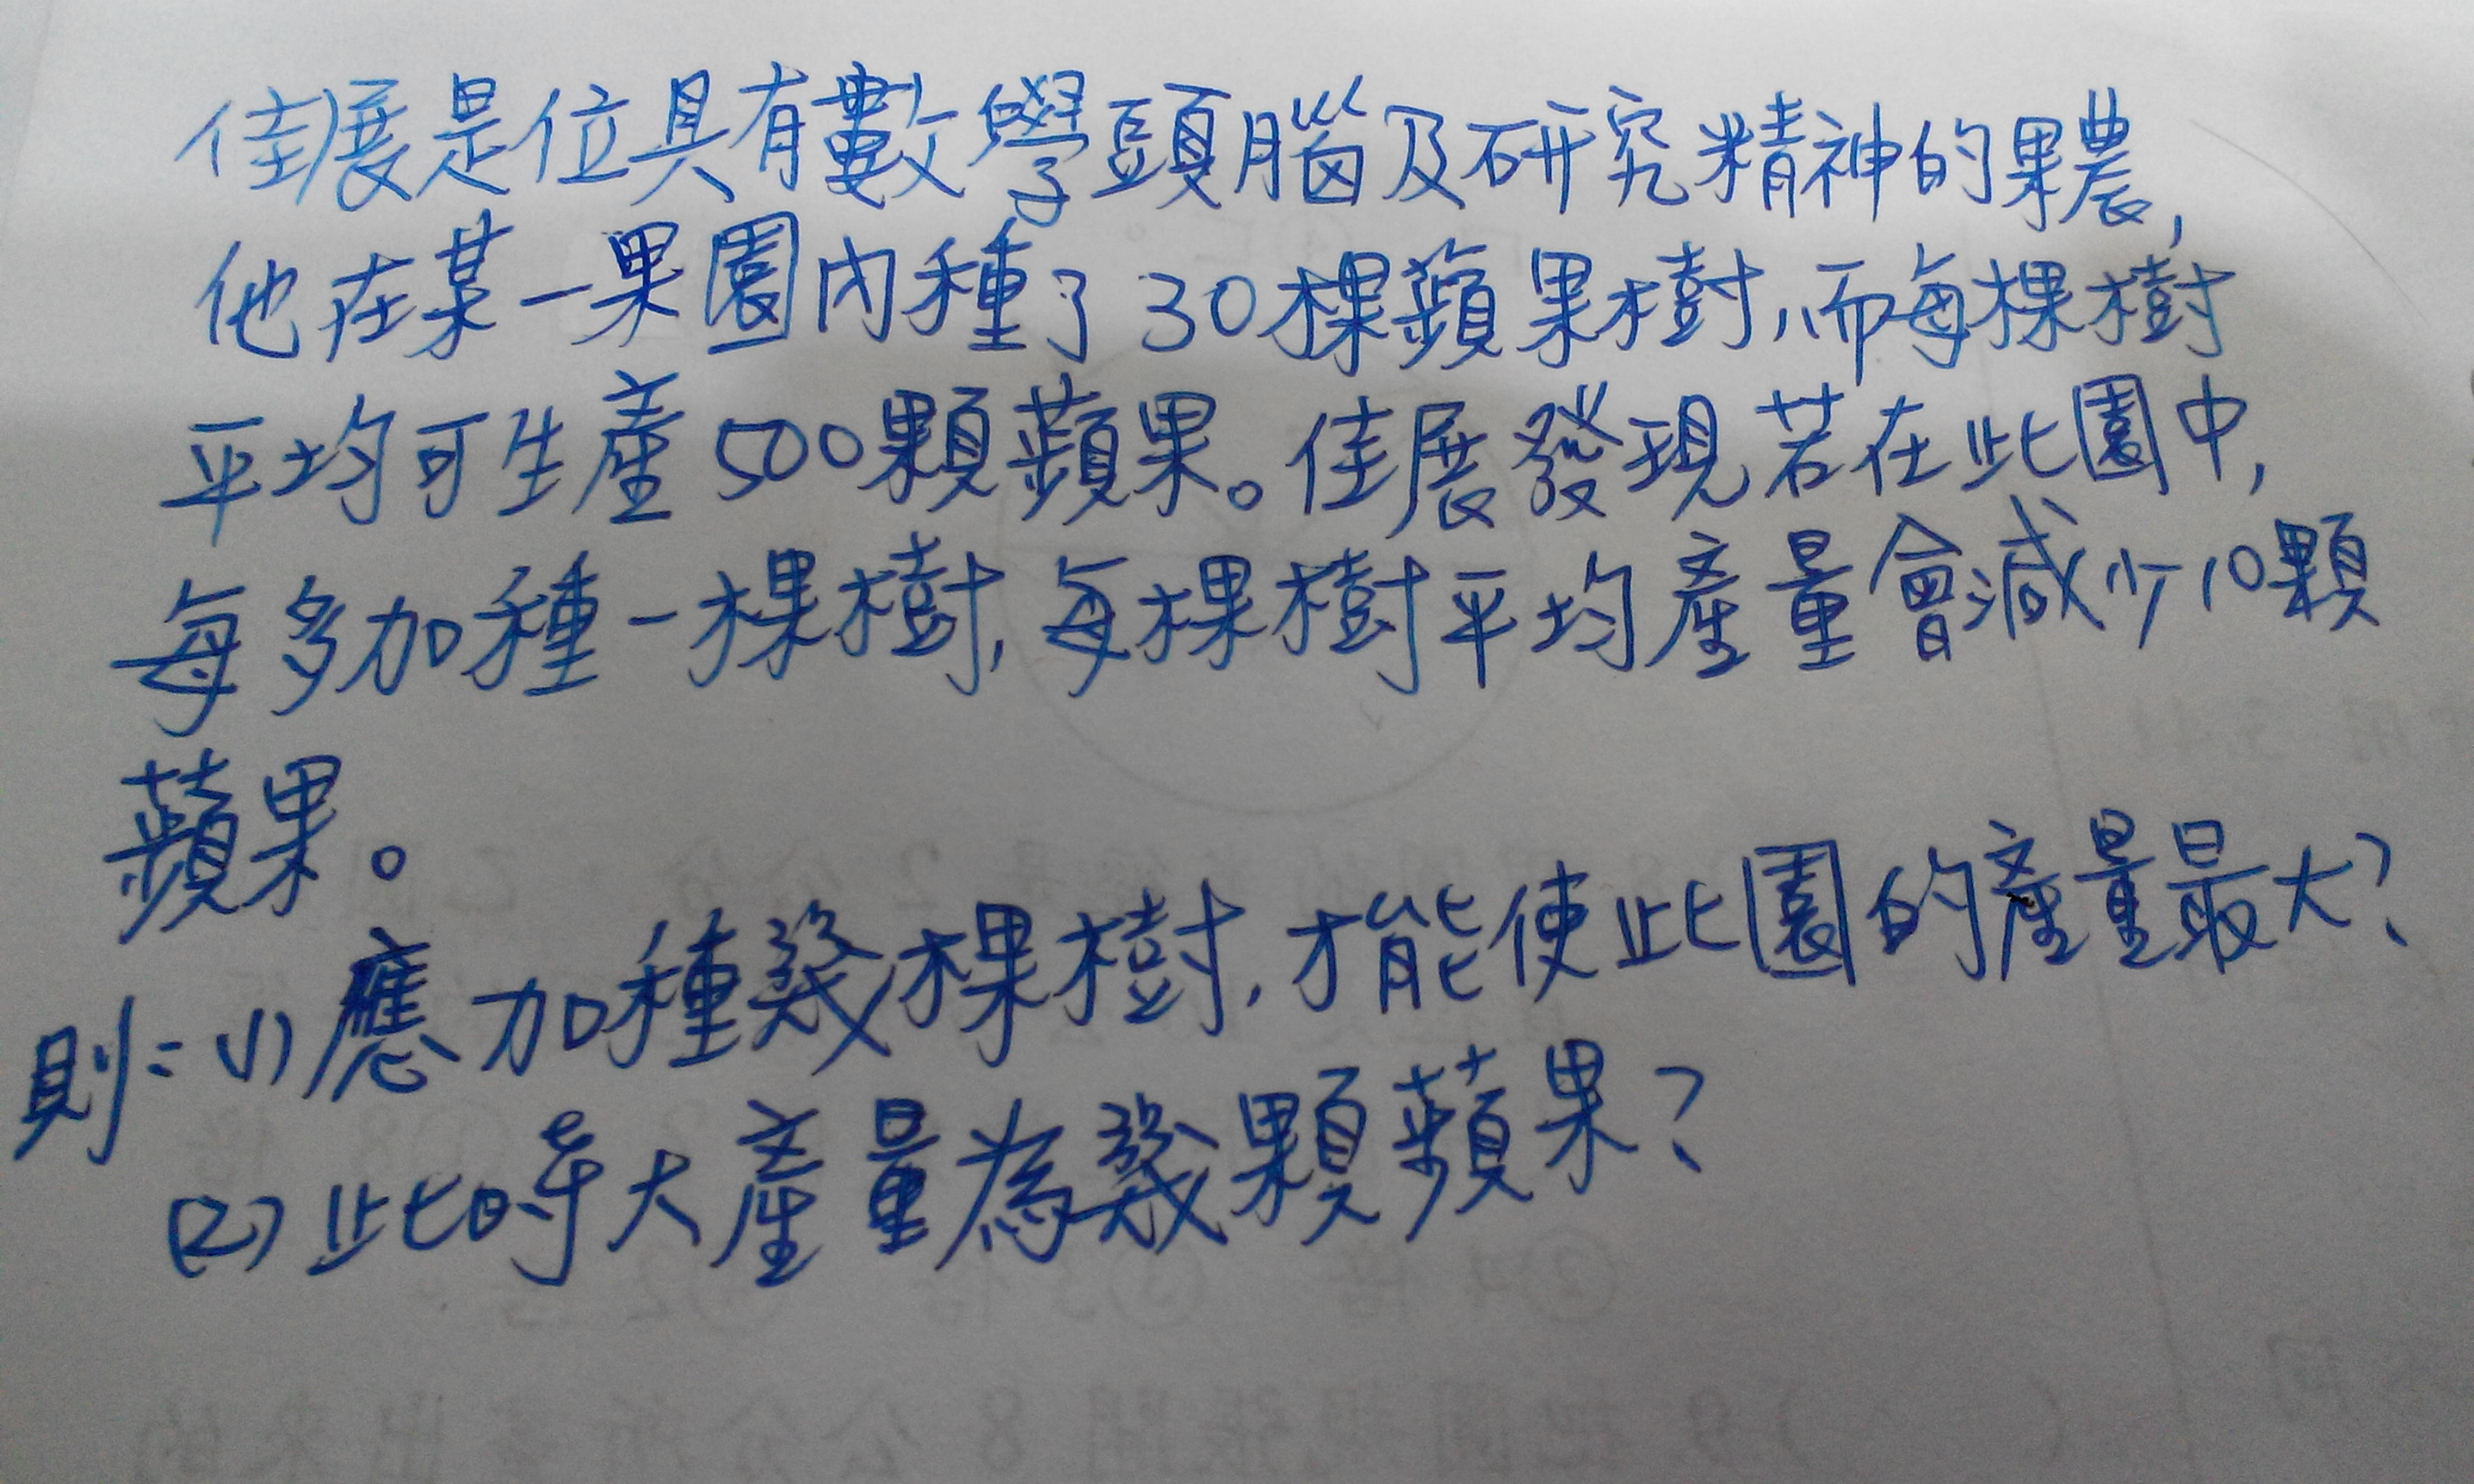 佳展是位具有數學頭腦及研究精神的果農,
他在某一果園內種了30棵蘋果樹,而每棵樹
平均可生產500顆蘋果。佳展發現若在此園中,
每多加種一棵樹,每棵樹平均產量會減少10顆
蘋果。
則:(1)應加種幾棵樹,才能使此園的產量最大?
(2)此時大產量為幾顆蘋果?